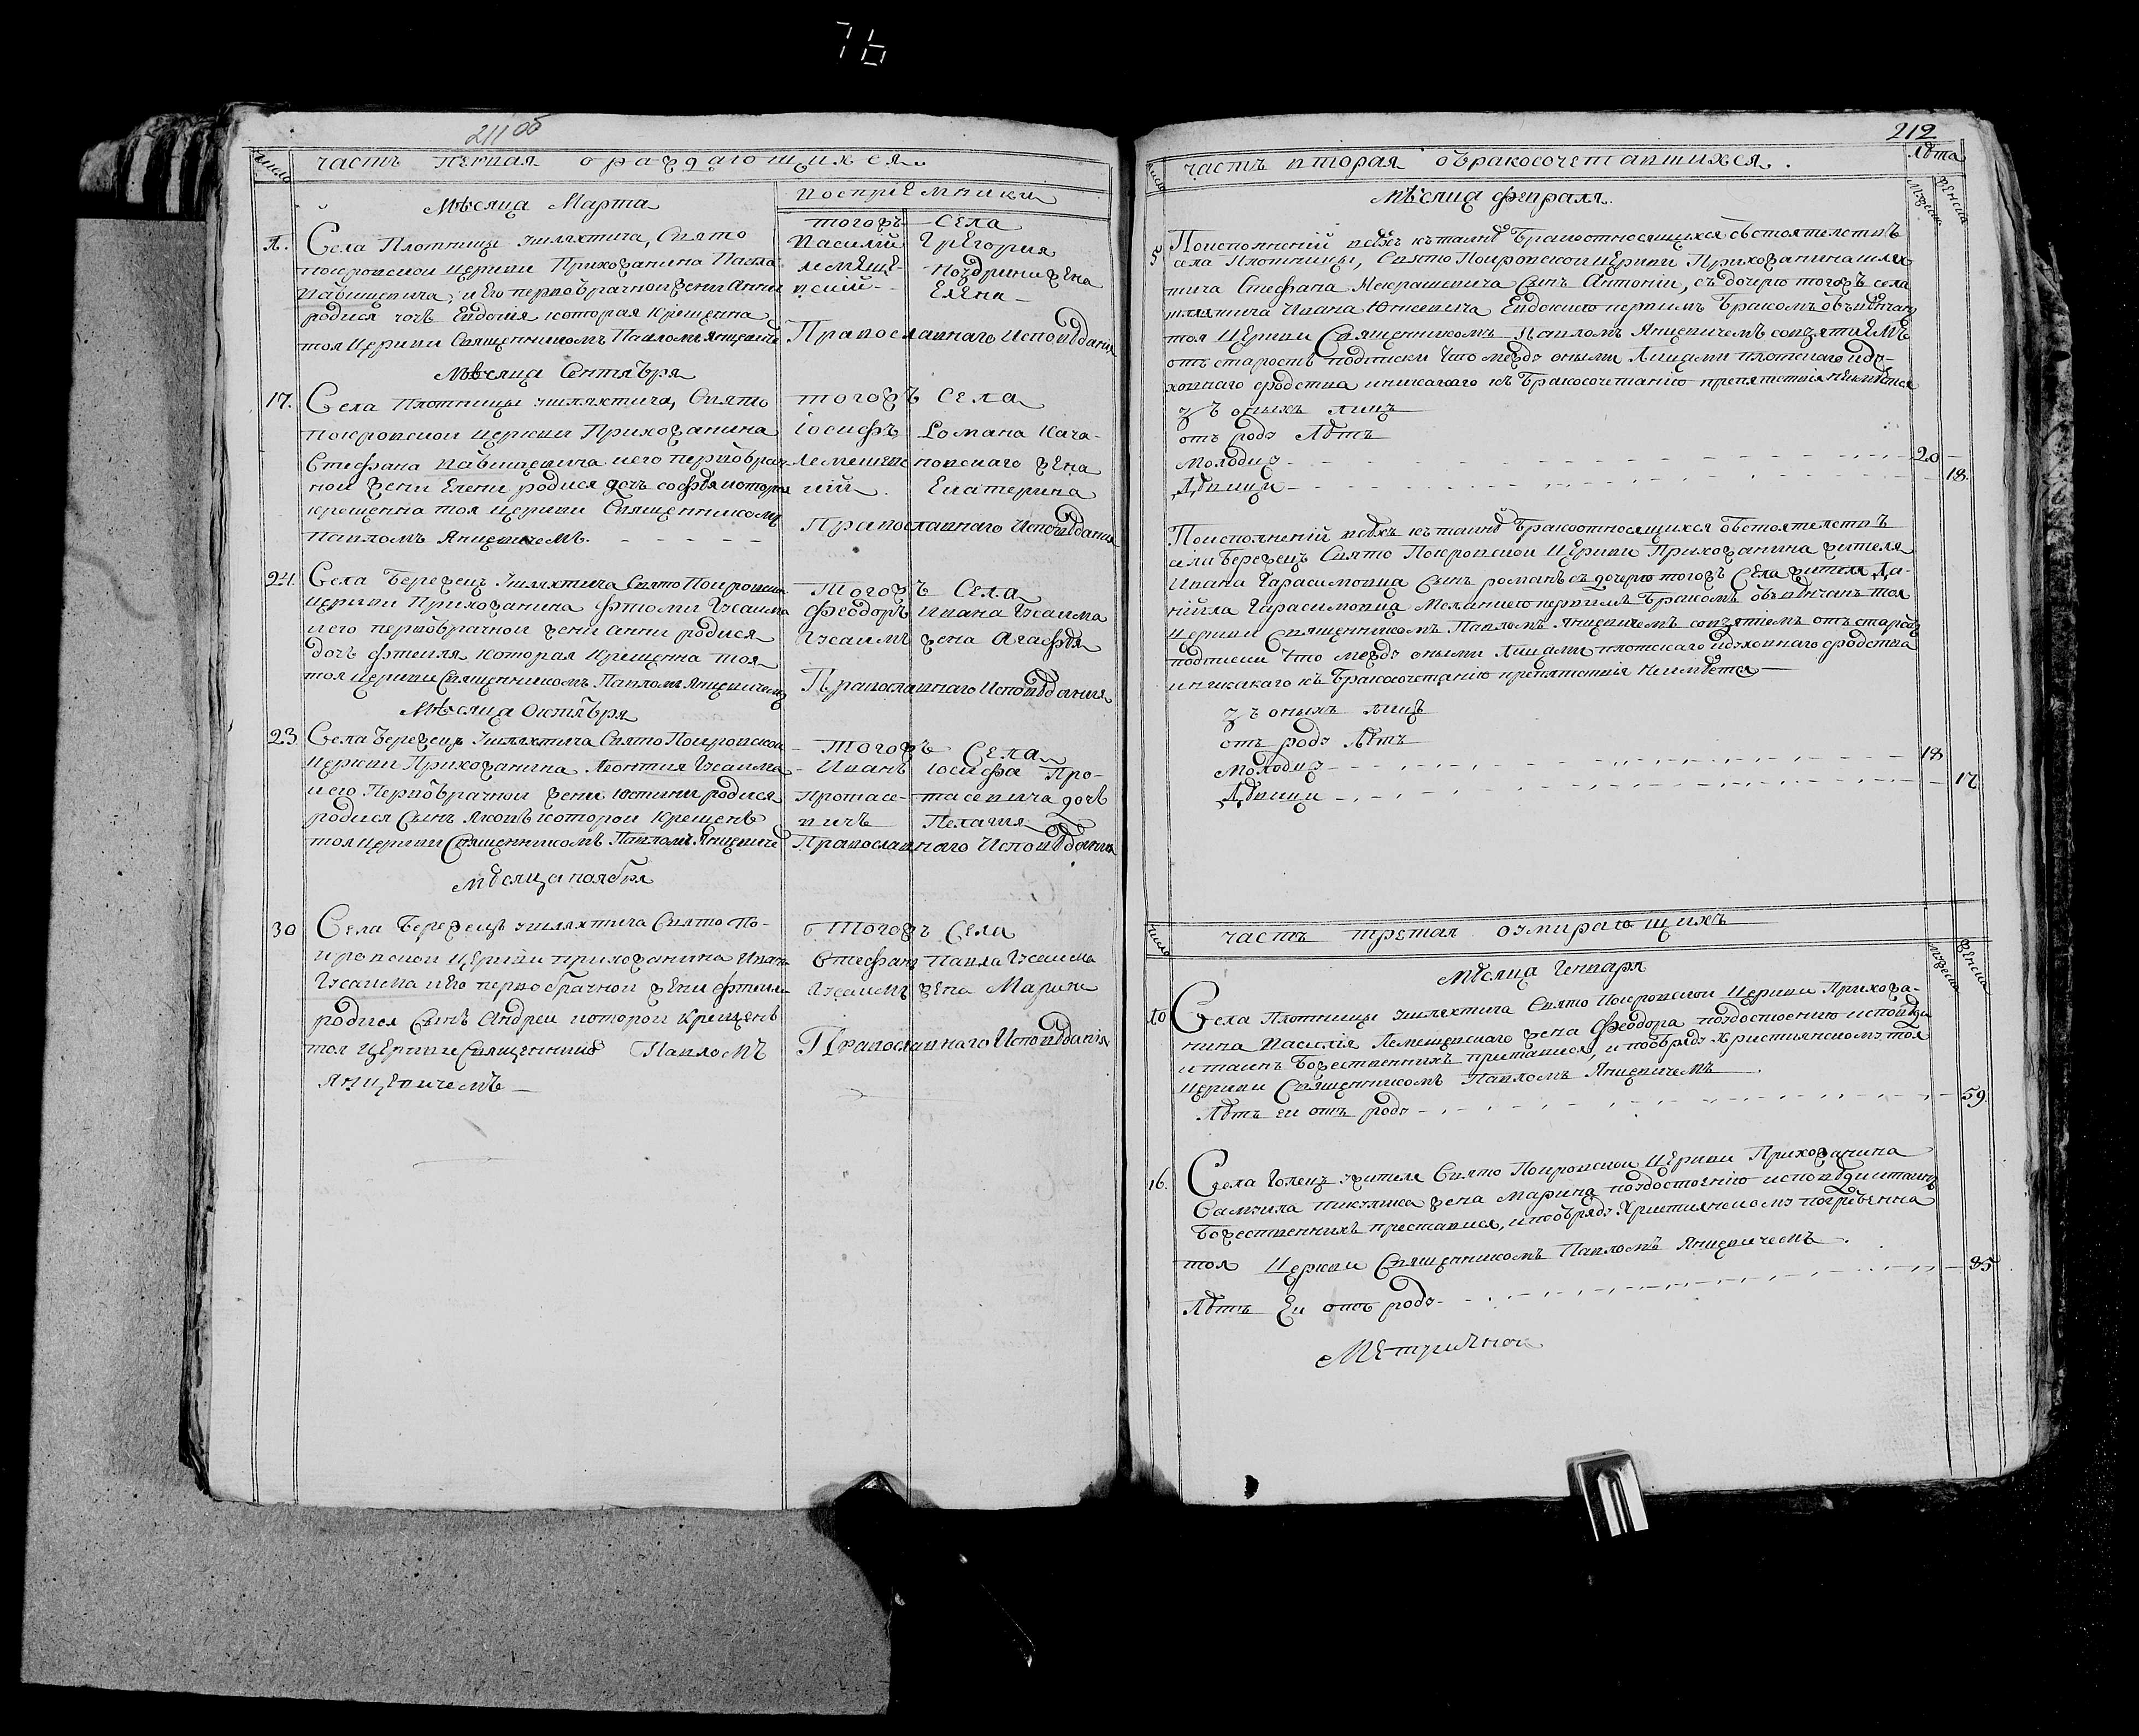 76
211 об
число
часть первая о раждающихся.
Мѣсяца Марта
Воспріемники
тогожъ Села
1. Села Плотницы Шляхтича, Свято
Покровской Церкви Прихожанина Павла
и Его первобрачной жени Анни
родися дочь Евдокия которая Крещенна
тоя Церкви Священникомъ Павломъ Янцевиче
Василий Грегория
Лемеше- жена
вский Елена
Православнаго Исповѣдания
Мѣсяца Сентябра
17. Села Плотницы Шляхтича, Свято
Покровской Церкви Прихожанина
Стефана и его первобрач
ной жени Елени родися дочь Софѣя котора
крещенна тоя Церкви Священникомъ
Павломъ Янцевичемъ.
тогожъ Села
Іосифъ Романа Кача-
Лемешевс новскаго жена
кий Екатерина
Православнаго Исповѣдания
24. Села Бережецъ Шляхтича Свято Покровской
Церкви Прихожанина
и его первобрачной жени Анни родися
дочь которая Крещенна тоя
тоя Церкви Священникомъ Павломъ Янцевичемъ
Тогожъ Села
Феодоръ Ивана
жена Агафѣя
Православнаго Исповѣдания
Мѣсяца Октября
23. Села Бережецъ Шляхтича Свято Покровской
Церкви Прихожанина Леонтия
и его Первобрачной жени Юстинии родися
родися Синъ Яковъ которой Крещенъ
тоя Церкви Священникомъ Павломъ Янцевиче
Тогожъ Села
Иванъ Іосифа Про-
Протасе- тасевича дочь
вичъ Пелагия
Православнаго Исповѣдания
Мѣсяца ноября
30 Села Бережецъ Шляхтича Свято По-
кровской Церкви прихожанина Ивана
и Его первобрачной жени
родися Синъ Андрей которой Крещенъ
тоя Церкви Священнико Павломъ
Янцевичемъ
Тогожъ Села
Стефанъ Павла
жена Марина
Православнаго Исповѣданія
212
число
часть вторая о бракосочетавшихся.
Лѣта
Мужеска
Женска
Мѣсяца Февраля.
5 По исполнений всѣхъ къ таинѣ Брака относящихся обстоятелствъ
села Плотницы, Свято Покровской Церкви Прихожанина шлях
тича Стефана Некрашевича Синъ Антоний, съ дочерю тогожъ села
шляхтича Ивана Евдокиею первимъ Бракомъ обвѣнчанъ
тоя Церкви Священникомъ Павломъ Янцевичемъ со взятиемъ
отъ старостъ подписки что между оными Лицами плотскаго и ду-
ховнаго сродства и никакаго къ Бракосочетанию препятствія неимѣется
зъ оныхъ лицъ
отъ роду Лѣтъ
Молодцу 20
Дѣвици 18.
По исполнений всѣхъ къ таинѣ Брака относящихся обстоятелствъ
Бережецъ Свято Покровской Церкви Прихожанина жителя
Ивана Гарасимовца Синъ романъ съ дочерю тогожъ Села жителя Да-
нийла Гарасимовца Меланиею первимъ Бракомъ обвѣнчанъ тоя
Церкви Священникомъ Павломъ Янцевичемъ со взятіемъ отъ старостъ
подписки что между оными Лицами плотскаго и духовнаго сродства
и никакаго къ Бракосочетанию препятствія Неимѣется
зъ оныхъ лицъ
отъ роду Лѣтъ
Молодцу 18
Дѣвици
число
часть третая о умирающихъ
Мужеска
Женска
Мѣсяца Генваря
10 Села Плотницы Шляхтича Свято Покровской Церкви Прихожа-
нина Василія Лемешевскаго жена Феодора по удостоению исповѣди
и таинъ Божественныхъ преставися, и по обряду Христианскому тоя
Церкви Священникомъ Павломъ Янцевичемъ
Лѣтъ ей отъ роду 59.
16. Села жителя Свято Покровской Церкви Прихожанина
Самуила жена Марина по удостоению исповѣди и таинъ
Божественныхъ преставися, и по обряду Христианскому погребенна
тоя Церкви Священникомъ Павломъ Янцевичемъ.
Лѣтъ Ей отъ роду 85